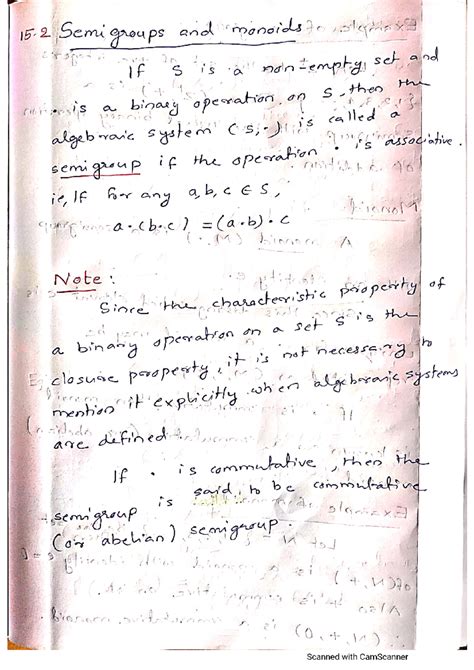 15.2 Semigroups and monoids
If S is a non-empty set and
• is a binary operation on S, then the
algebraic system (S, •) is called a
semigroup if the operation • is associative.
ie, If for any a, b, c ∈ S,
a • (b • c) = (a • b) • c
Note :
Since the characteristic property of
a binary operation on a set S is the
closure property, it is not necessary to
mention it explicitly when algebraic systems
are defined.
If • is commutative, then the
semigroup is said to be commutative
(or abelian) semigroup.
Scanned with CamScanner